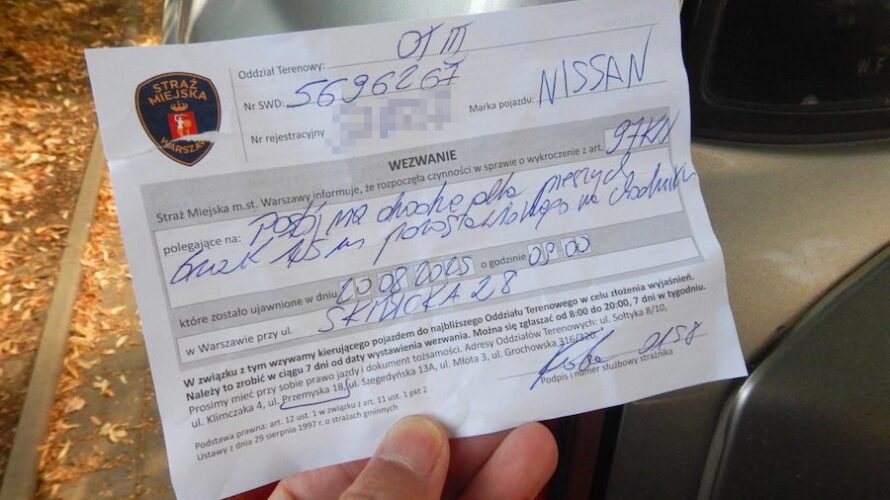 STRAŻ
MIEJSKA
WARSZAWA
Oddział Terenowy: OT III
Nr SWD: 5696267
Nr rejestracyjny
Marka pojazdu: NISSAN
WEZWANIE
Straż Miejska m.st. Warszawy informuje, że rozpoczęła czynności w sprawie o wykroczenie z art. 97KW
polegające na: Postój na drodze dla pieszych
brak 1,5 m pozostawionego na chodniku
które zostało ujawnione w dniu 20 08 2025 o godzinie 09 00
w Warszawie przy ul. 28
W związku z tym wzywamy kierującego pojazdem do najbliższego Oddziału Terenowego w celu złożenia wyjaśnień.
Należy to zrobić w ciągu 7 dni od daty wystawienia wezwania. Można się zgłaszać od 8:00 do 20:00, 7 dni w tygodniu.
Prosimy mieć przy sobie prawo jazdy i dokument tożsamości. Adresy Oddziałów Terenowych: ul. Sołtyka 8/10,
ul. Klimczaka 4, ul. Przemyska 18, ul. Szegedyńska 13A, ul. Młota 3, ul. Grochowska 316/320.
Podpis i numer służbowy strażnika
Podstawa prawna: art. 12 ust. 1 w związku z art. 11 ust. 1 pkt 2
Ustawy z dnia 29 sierpnia 1997 r. o strażach gminnych